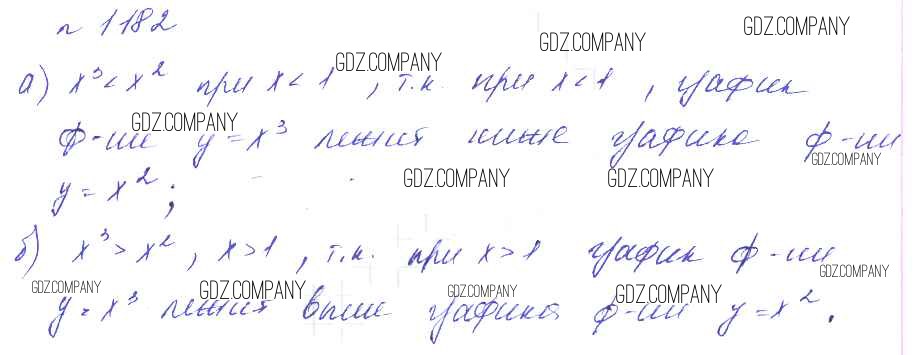 n 1182
GDZ.COMPANY GDZ.COMPANY
GDZ.COMPANY
а) x³ < x² при x < 1, т.к. при x < 1, график
GDZ.COMPANY
ф-ии y = x³ лежит ниже графика ф-ии
GDZ.COMPANY
GDZ.COMPANY GDZ.COMPANY
y = x²;
б) x³ > x², x > 1, т.к. при x > 1 график ф-ии
GDZ.COMPANY
GDZ.COMPANY GDZ.COMPANY GDZ.COMPANY GDZ.COMPANY
y = x³ лежит выше графика ф-ии y = x².